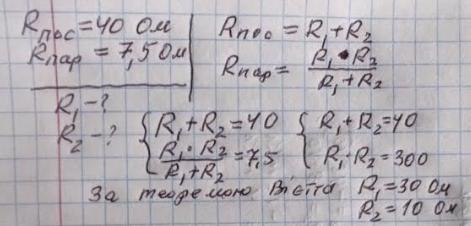 Rпос = 40 Ом
Rпар = 7,5 Ом
R₁ - ?
R₂ - ?
Rпос = R₁ + R₂
Rпар = R₁ • R₂ / R₁ + R₂
{ R₁ + R₂ = 40
R₁ · R₂ / R₁ + R₂ = 7,5
{ R₁ + R₂ = 40
R₁ · R₂ = 300
За теоремою Вієтта R₁ = 30 Ом
R₂ = 10 Ом